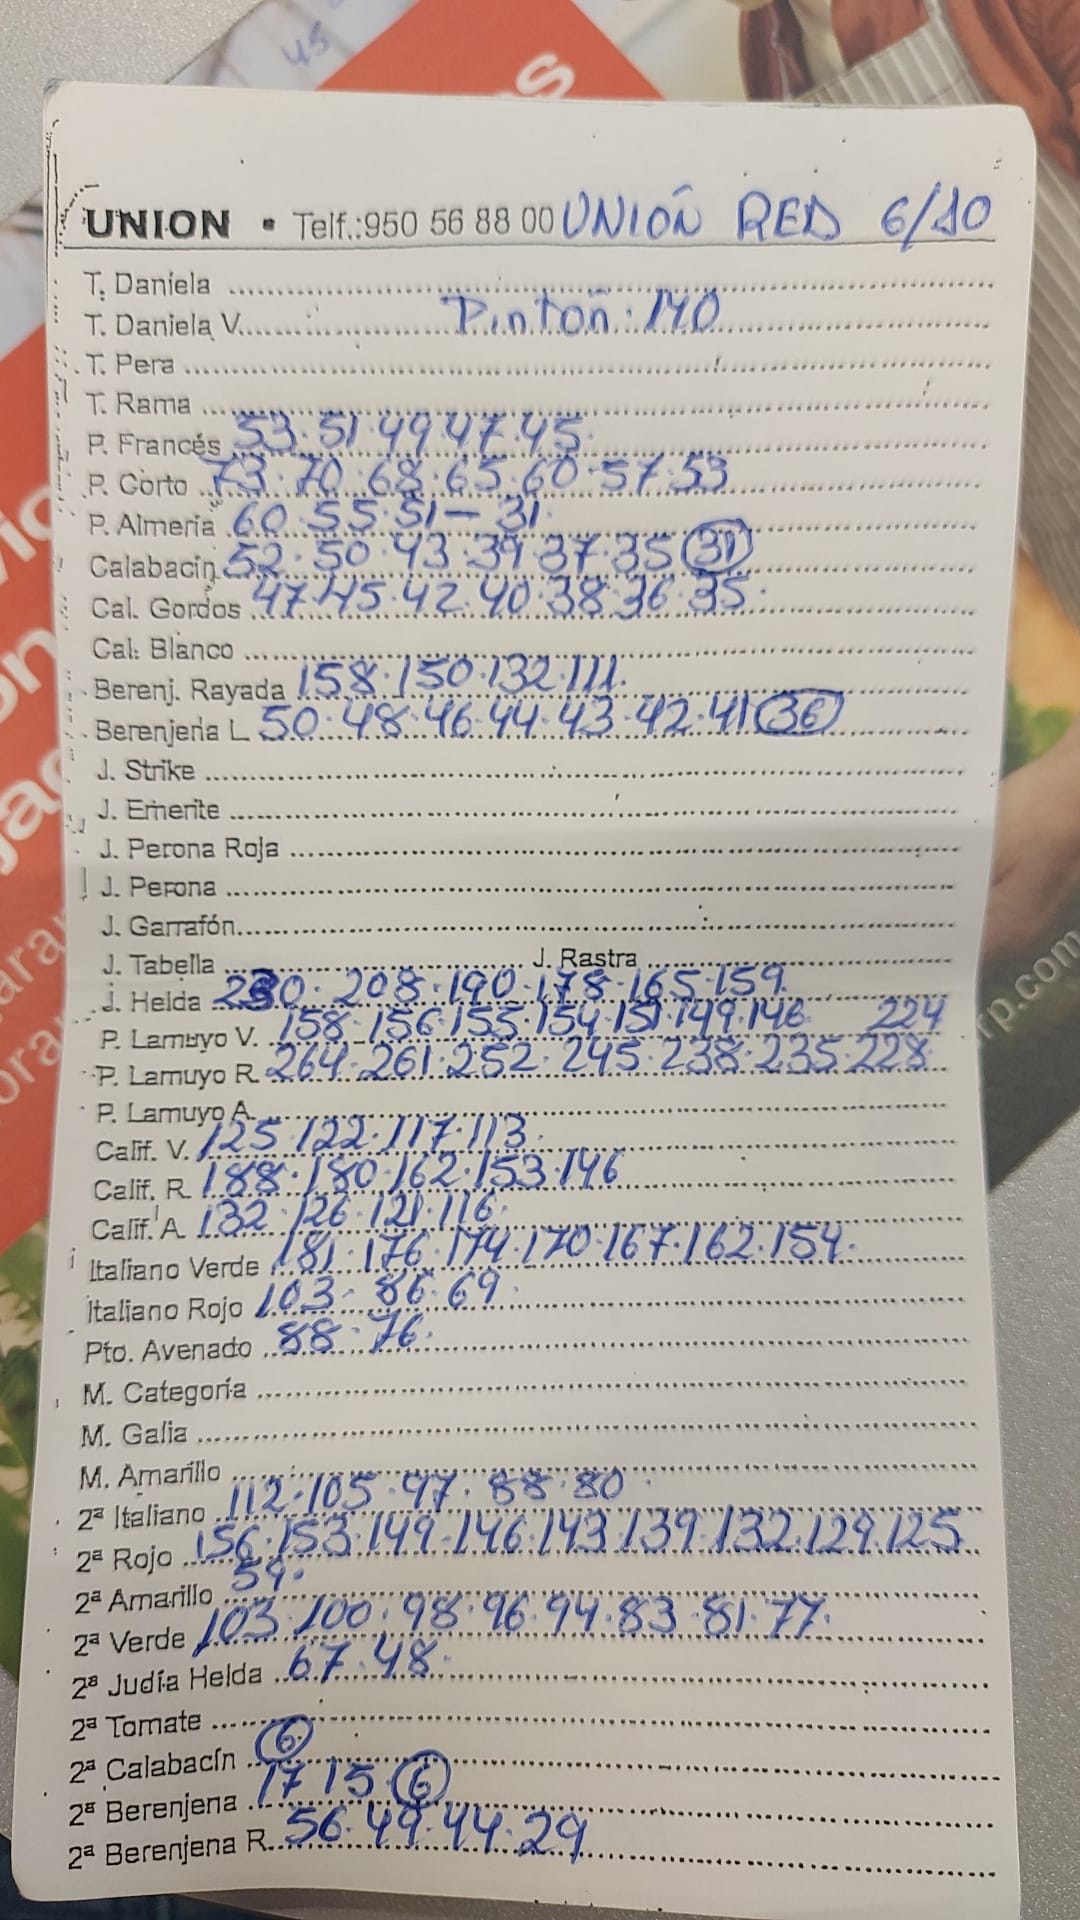 UNION • Telf.:950 56 88 00 UNIÓN RED 6/10
T. Daniela
T. Daniela V. Pintón: 140
T. Pera
T. Rama
P. Francés 53·51·49·47·45·
P. Corto 73·70·68·65·60·57·53
P. Almería 60·55·51 — 31·
Calabacín 52·50·43·39·37·35 (31)
Cal. Gordos 47·45·42·40·38·36·35·
Cal. Blanco
Berenj. Rayada 158·150·132·111.
Berenjena L 50·48·46·44·43·42·41 (36)
J. Strike
J. Emerite
J. Perona Roja
J. Perona
J. Garrafón
J. Tabella J. Rastra
J. Helda 230·208·190·178·165·159.
P. Lamuyo V. 158·156·155·154·151·149·146 224
P. Lamuyo R. 264·261·252·245·238·235·228
P. Lamuyo A.
Calif. V. 125·122·117·113.
Calif. R. 188·180·162·153·146
Calif. A. 132·126·121·116.
Italiano Verde 181·176·174·170·167·162·154·
Italiano Rojo 103·86·69·
Pto. Avenado 88·76.
M. Categoría
M. Galia
M. Amarillo
2ª Italiano 112·105·97·88·80·
2ª Rojo 156·153·149·146·143·139·132·129·125
2ª Amarillo 59.
2ª Verde 103·100·98·96·94·83·81·77·
2ª Judía Helda 67·48·
2ª Tomate
2ª Calabacín (6)
2ª Berenjena 17 15 (6)
2ª Berenjena R. 56·49·44·29